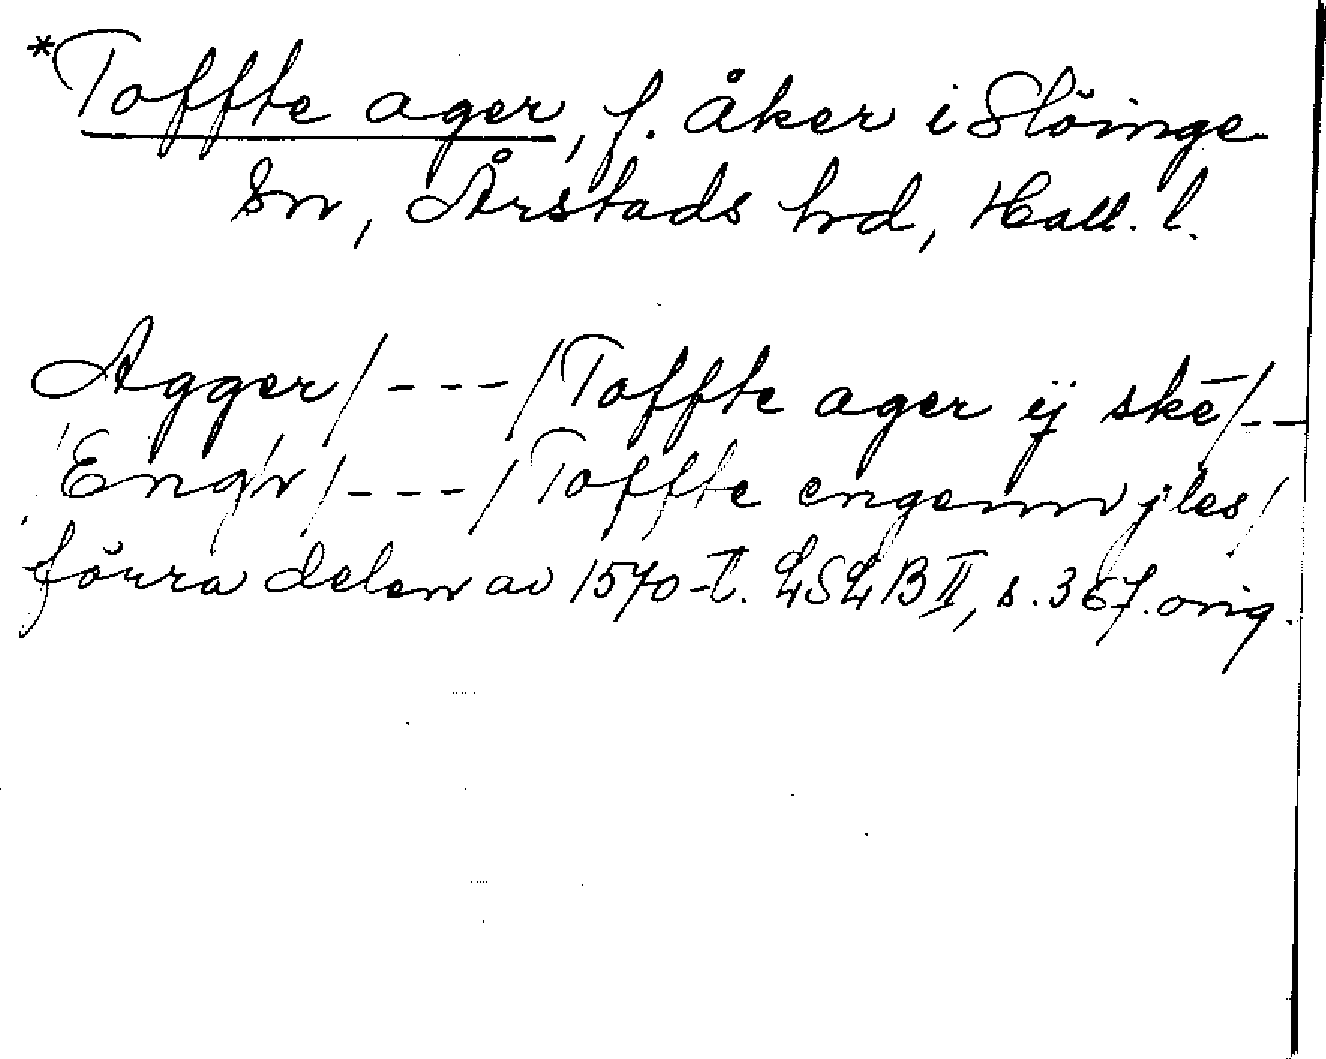 *Toffte ager, f. åker i Slöinge
sn, Årstads hd, Hall. l.
Agger/---/Toffte ager ij skē/--
Eng/r/---/Toffte engenn jles/
förra delen av 1570-t. LSLB II, s. 367. orig.